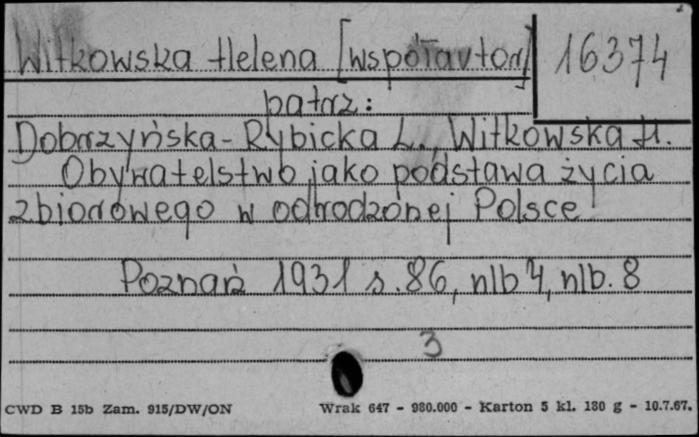 Witkowska Helena [współautor]
16374
patrz:
Dobrzyńska-Rybicka L., Witkowska H.
Obywatelstwo jako podstawa życia
zbiorowego w odrodzonej Polsce
Poznań 1931 s. 86, nlb 4, nlb. 8
3
CWD B 15b Zam. 915/DW/ON Wrak 647 - 980.000 - Karton 5 kl. 180 g - 10.7.67.